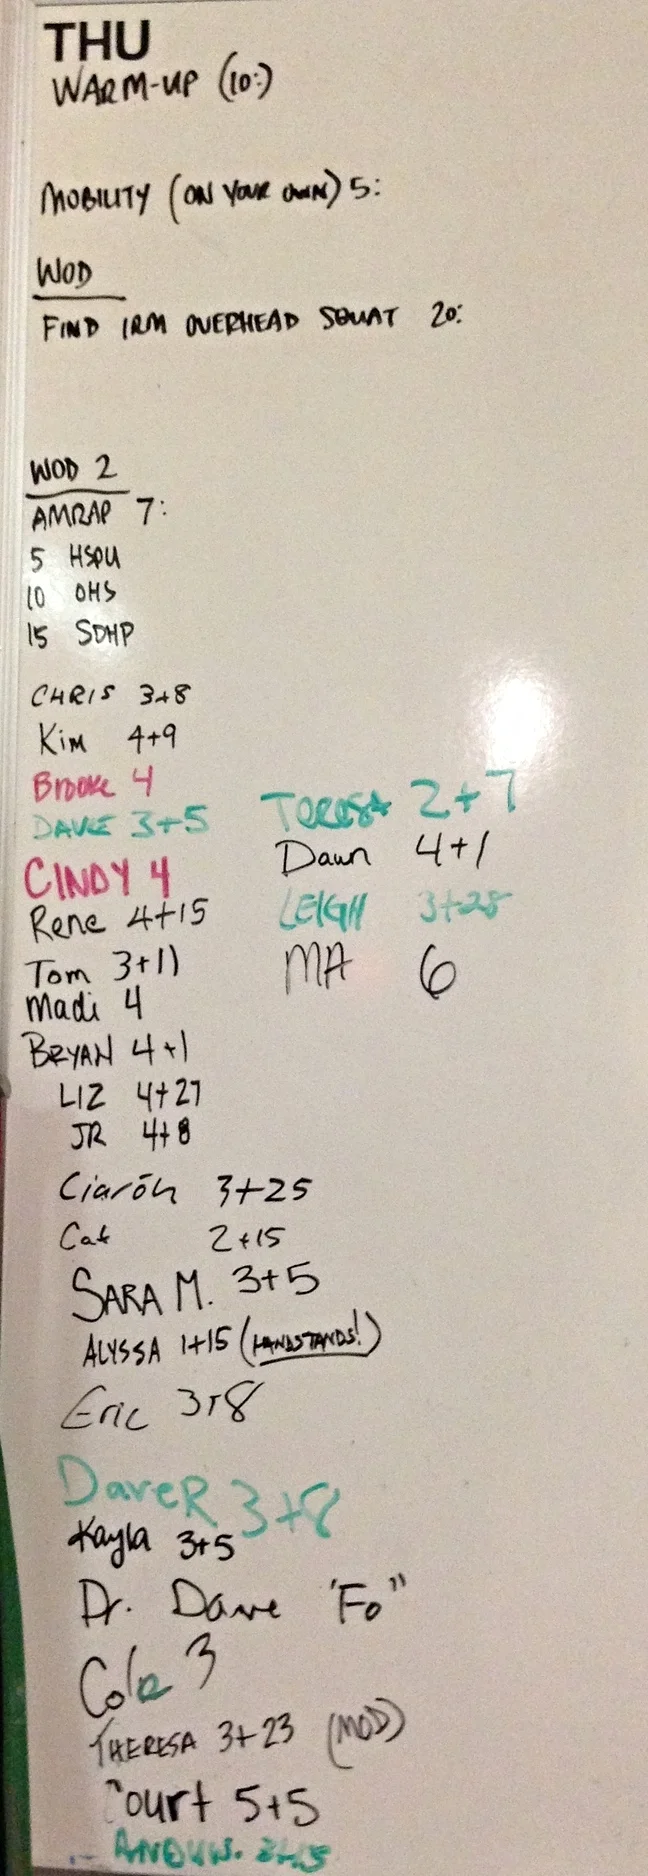 THU
WARM-UP (10:)
MOBILITY (ON YOUR OWN) 5:
WOD
FIND 1RM OVERHEAD SQUAT 20:
WOD 2
AMRAP 7:
5 HSPU
10 OHS
15 SDHP
CHRIS 3+8
Kim 4+9
Brooke 4
DAVE 3+5
CINDY 4
Rene 4+15
Tom 3+11
Madi 4
BRYAN 4+1
LIZ 4+27
JR 4+8
Ciarón 3+25
Cat 2+15
SARA M. 3+5
ALYSSA 1+15 (HANDSTANDS!)
Eric 3+8
Dave R 3+8
Kayla 3+5
Dr. Dave "Fo"
Cole 3
THERESA 3+23 (MOD)
Court 5+5
Teresa 2+7
Dawn 4+1
LEIGH 3+28
MA 6